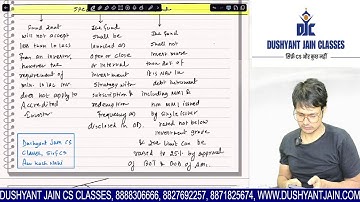 Fund shall
will not accept
less than 10 lacs
from an investor,
however the
requirement of
min. 10 lac inv.
does not apply to
Accredited
Investor
The Fund
shall be
launched as
open or close
or interval
Investment
Strategy with
subscription &
redemption
frequency as
disclosed in OD.
The Fund
shall not
invest more
than 20% of
its NAV in
debt instrument
including MMI &
non MMI issued
by single issuer
rated not below
investment grade
& the limit can be
raised to 25% by approval
of BOT & BOD of AMC.
Dushyant Jain CS
Classes, Sirf CS
Aur kuch Nahi
DJC
DUSHYANT JAIN CLASSES
सिर्फ CS और कुछ नहीं
DUSHYANT JAIN CS CLASSES, 8888306666, 8827692257, 8871825674, WWW.DUSHYANTJAIN.COM